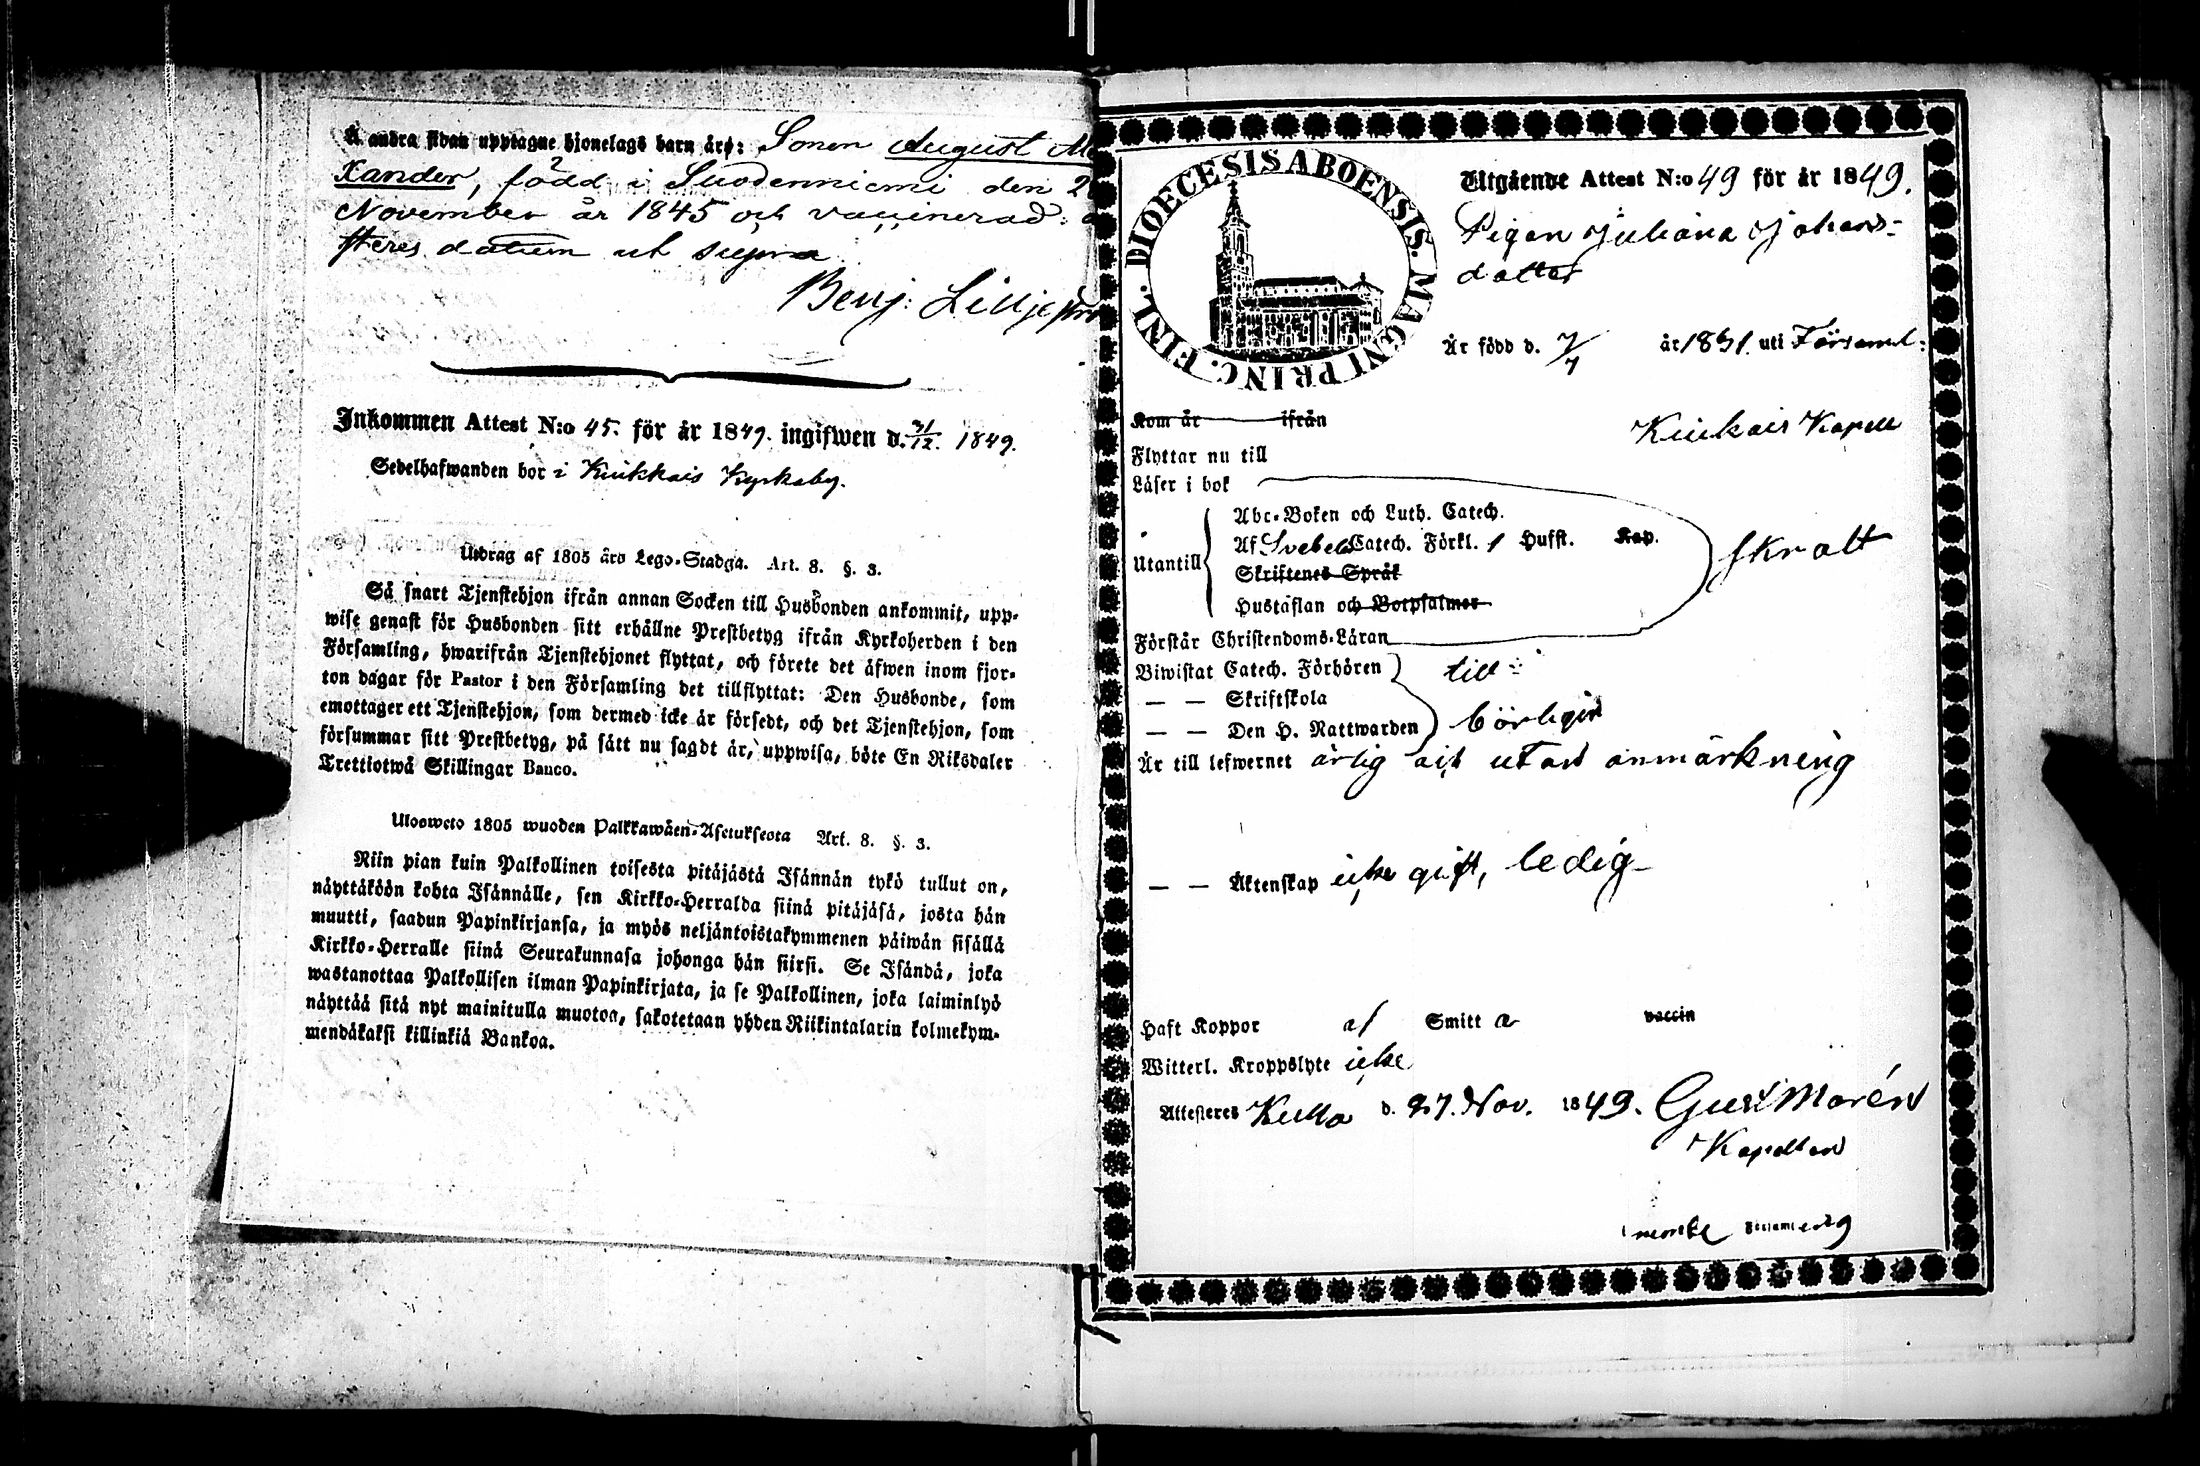 Å andra sidan upptagne hjonelags barn äro: Sonen August Ale
Xander, född i Suodenniemi den 2
November år 1845 och vaccinerad:
steres datum ut supra
Benj: Lilljestr
Inkommen Attest N:o 45. för år 1849. ingifwen d. 31/12. 1849.
Sedelhafwanden bor i Kiukkais Kyrkoby.
Utdrag af 1805 års Lego-Stadga. Art. 8. §. 3.
Så snart Tjenstehjon ifrån annan Socken till Husbonden ankommit, upp-
wise genast för Husbonden sitt erhållne Prestbetyg ifrån Kyrkoherden i den
Församling, hwarifrån Tjenstehjonet flyttat, och förete det äfwen inom fjor-
ton dagar för Pastor i den Församling det tillflyttat: Den Husbonde, som
emottager ett Tjenstehjon, som dermed icke är försedt, och det Tjenstehjon, som
försummar sitt Prestbetyg, på sätt nu sagdt är, uppwisa, böte En Riksdaler
Trettiotwå Skillingar Banco.
Ulosweto 1805 wuoden Palkkawäen-Asetuksesta Art. 8. §. 3.
Niin pian kuin Palkollinen toisesta pitäjästä Isännän tykö tullut on,
näyttäköön kohta Isännälle, sen Kirkko-Herralda siinä pitäjäsä, josta hän
muutti, saadun Papinkirjansa, ja myös neljäntoistakymmenen päiwän sisällä
Kirkko-Herralle siinä Seurakunnasa johonga hän siirsi. Se Isändä, joka
wastanottaa Palkollisen ilman Papinkirjata, ja se Palkollinen, joka laiminlyö
näyttää sitä nyt mainitulla muotoa, sakotetaan yhden Riikintalarin kolmekym-
mendäkaksi killinkiä Bankoa.
DIOECESIS ABOENSIS. MAGNI PRINC. FINL.
Utgående Attest N:o 49 för år 1849.
Pigan Juliana Johans-
dotter
Är född d. 7/7 år 1831. uti Församl:
Kom år ifrån
Kiukais Kapell
Flyttar nu till
Läser i bok
Abc-Boken och Luth. Catech.
Utantill
Af Svebel. Catech. Förkl. 1 Hufst. Kap.
Skriftenes Språk
Hustaflan och Botpsalmer
skralt
Förstår Christendoms-Läran
Biwistat Catech. Förhören till-
— — Skriftskola
— — Den H. Nattwarden börligen
Är till lefwernet ärlig och utan anmärkning
— — Äktenskap icke gift, ledig
Haft Koppor af Smitta vaccin
Witterl. Kroppslyte icke
Attesteres Kulla d. 27. Nov. 1849. Gust Morén
Kapellan